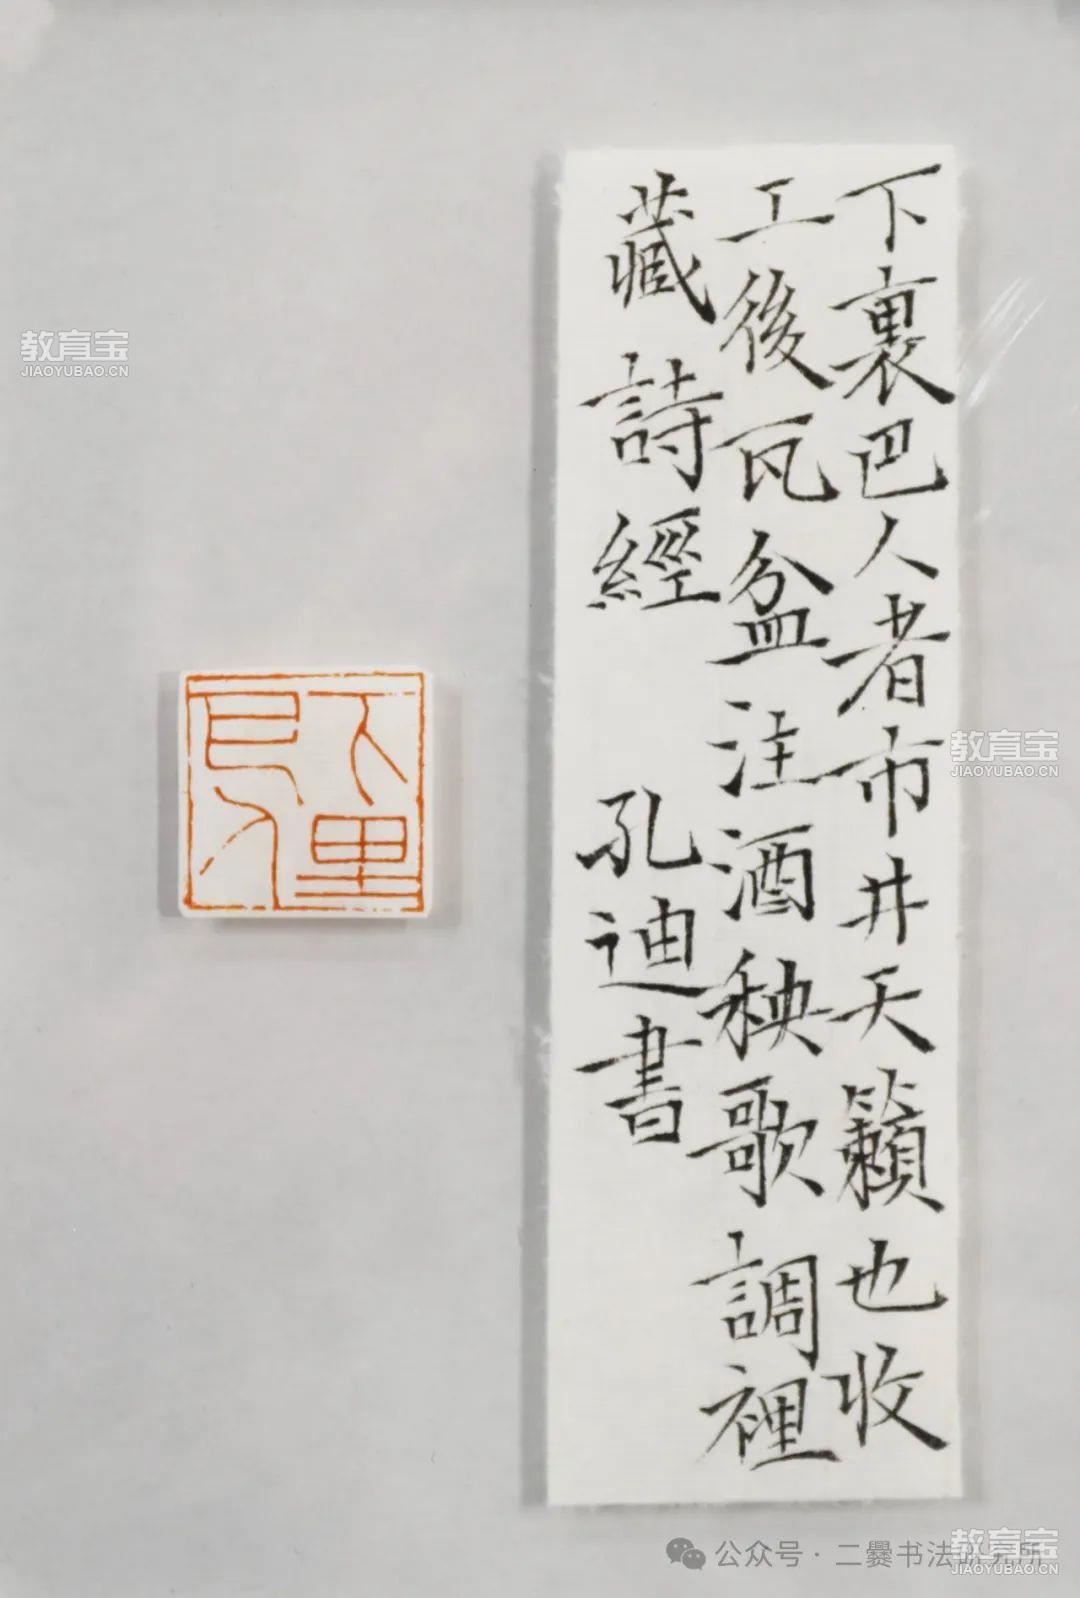 下裏巴人者市井天籟也收
工後瓦盆注酒秧歌調裡
藏詩經 孔迪書
下里
巴人
教育宝
JIAOYUBAO.CN
教育宝
JIAOYUBAO.CN
公众号·二爨书法研究所
教育宝
JIAOYUBAO.CN